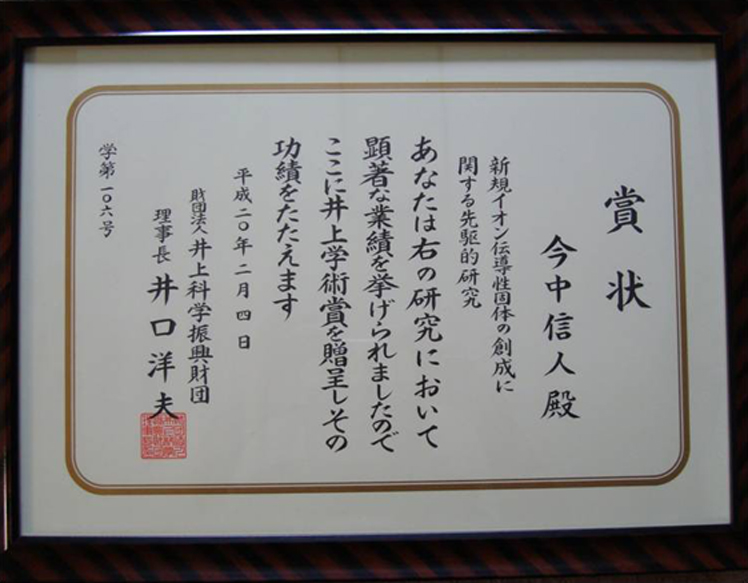 賞状
今中信人殿
新規イオン伝導性固体の創成に
関する先駆的研究
あなたは右の研究において
顕著な業績を挙げられましたので
ここに井上学術賞を贈呈しその
功績をたたえます
平成二〇年二月四日
財団法人井上科学振興財団
理事長 井口洋夫
学第一〇六号